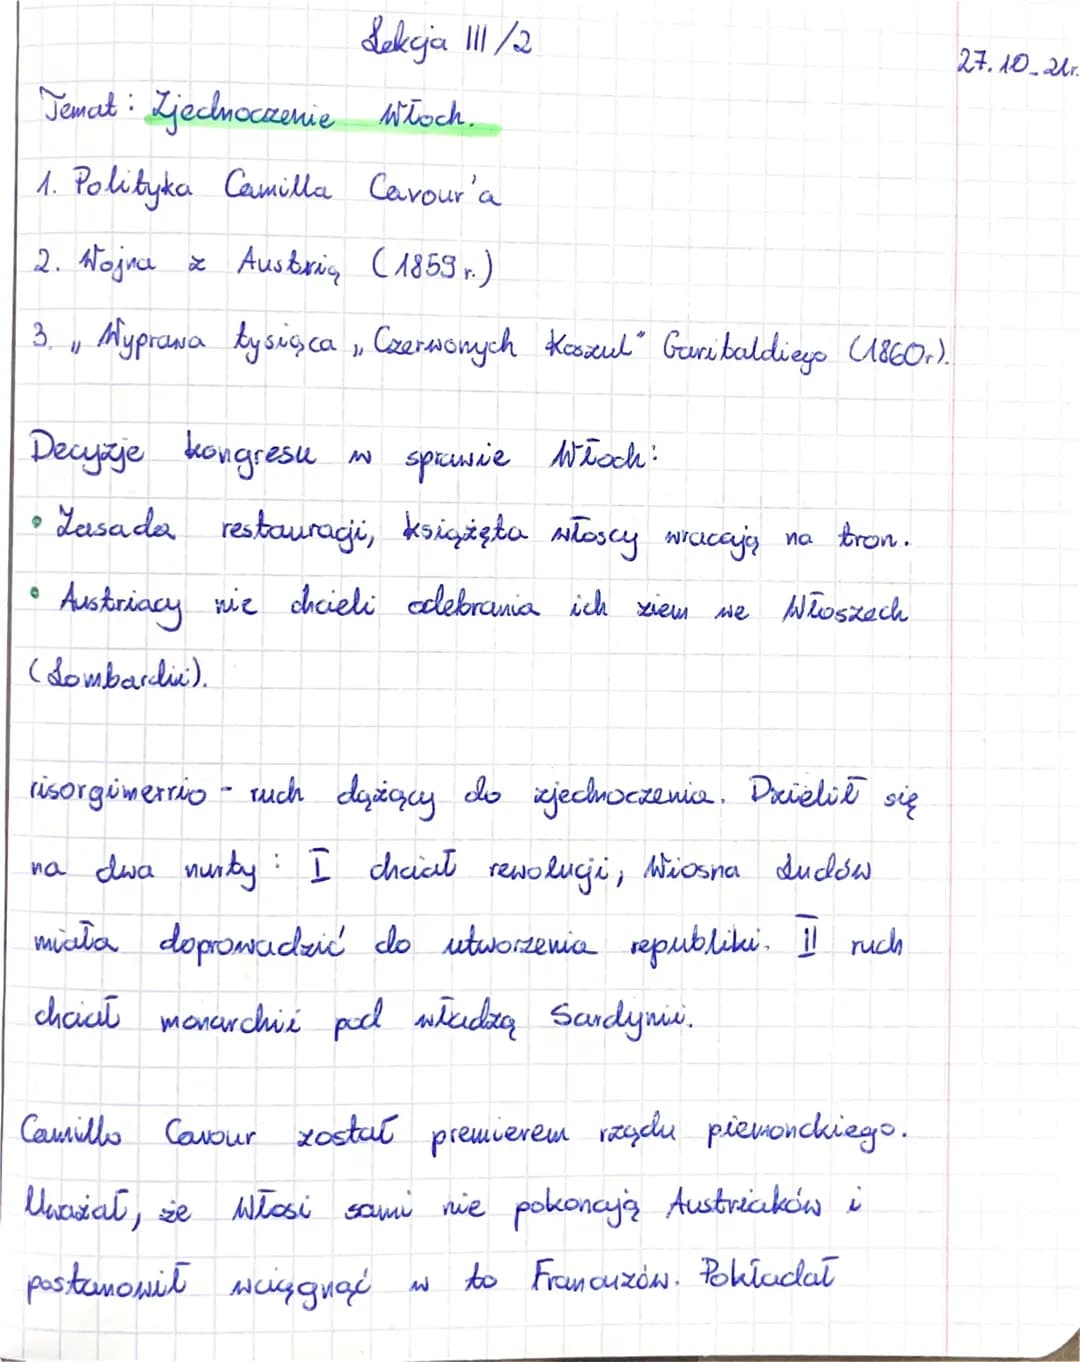 Lekcja III/2
27.10.21r.
Temat: Zjednoczenie Włoch.
1. Polityka Camilla Cavour'a
2. Wojna z Austrią (1859 r.)
3. „Wyprawa tysiąca „Czerwonych Koszul" Garibaldiego (1860r.).
Decyzje kongresu w sprawie Włoch:
• Zasada restauracji, książęta włoscy wracają na tron.
• Austriacy nie chcieli odebrania ich ziem we Włoszech
(Lombardii).
risorgimerrio - ruch dążący do zjednoczenia. Dzielił się
na dwa nurty: I chciał rewolucji, Wiosna Ludów
miała doprowadzić do utworzenia republiki. II ruch
chciał monarchii pod władzą Sardynii.
Camillo Cavour został premierem rządu piemonckiego.
Uważał, że Włosi sami nie pokonają Austriaków i
postanowił wciągnąć w to Francuzów. Pokładał